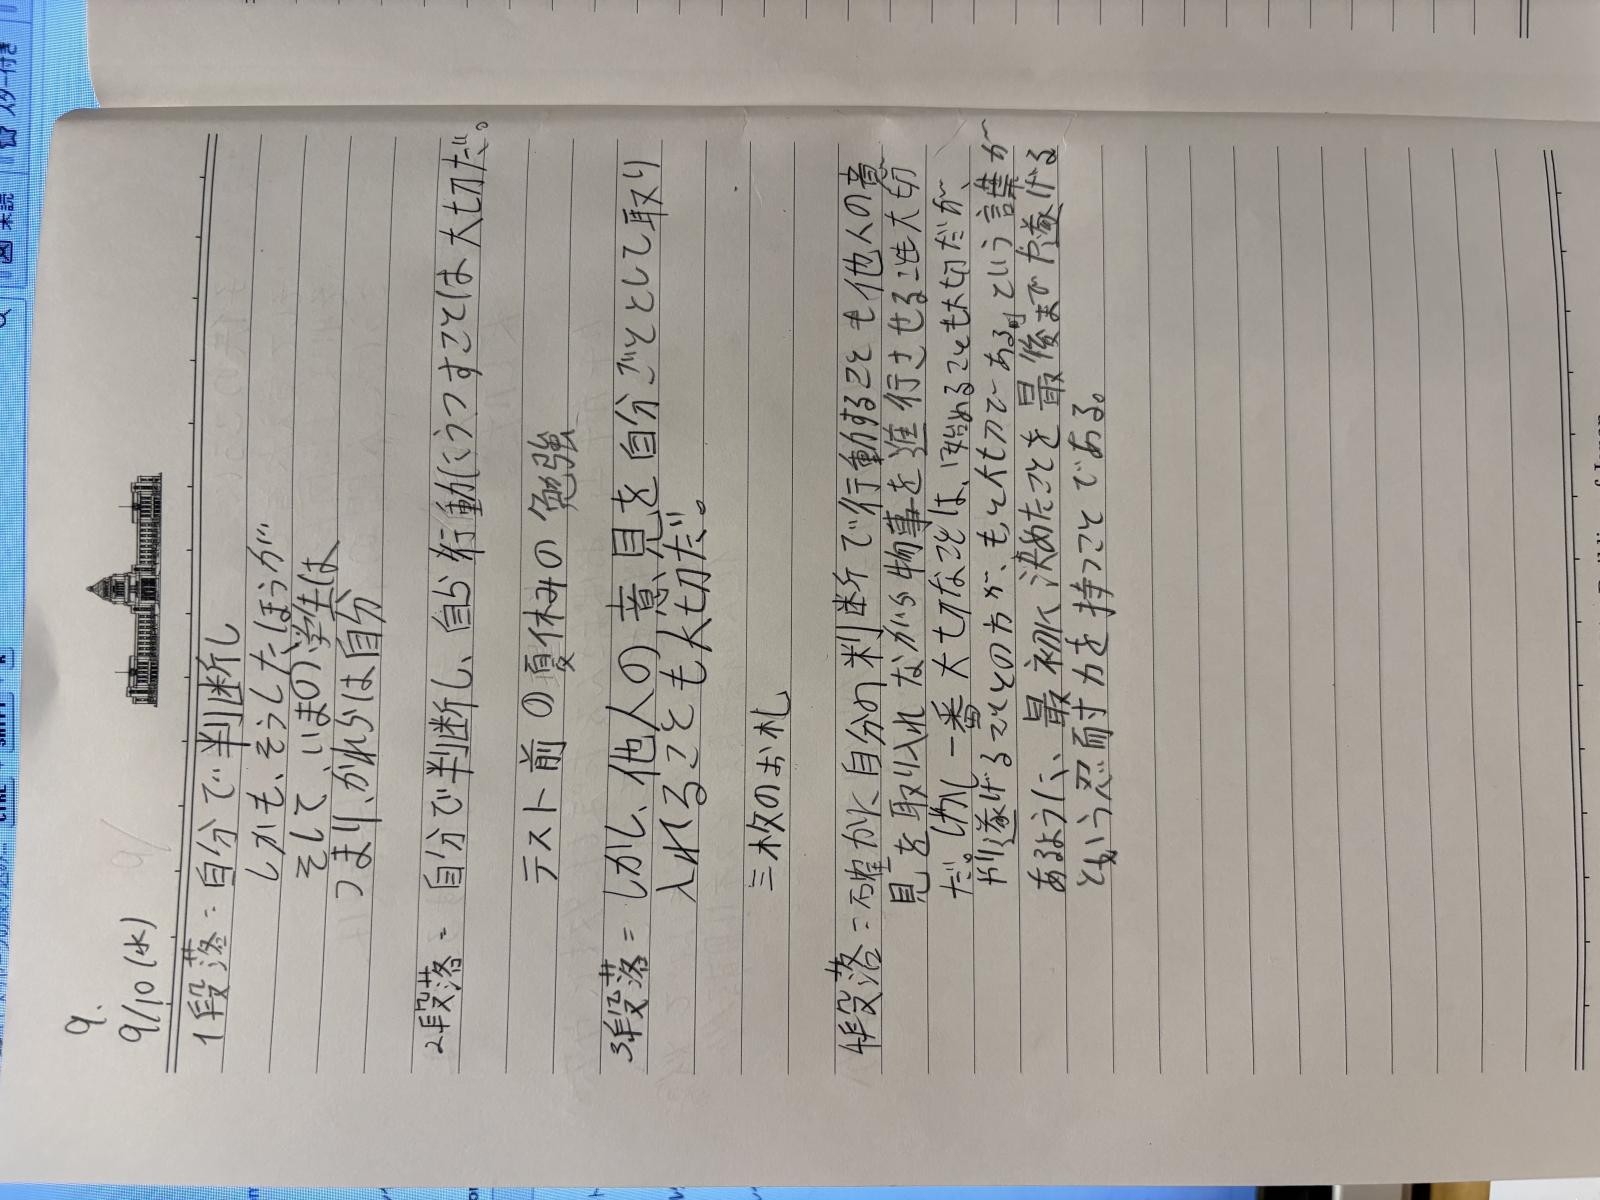 9.
9/10(水)
1段落=自分で判断し
しかも、そうしたほうが
そして、いまの学生は
つまり、かれらは自分
2段落=自分で判断し、自ら行動にうつすことは大切だ。
テスト前の夏休みの勉強
3段落=しかし、他人の意見を自分ごととして取り
入れることも大切だ。
三枚のお札
4段落=確かに自分の判断で行動することも他人の意
見を取り入れながら物事を進行させることも大切
だ。しかし一番大切なことは、「始めることも大切だが、
やり遂げることの方が、もっと大切である」という言葉が
あるように、最初に決めたことを最後までやり遂げる
という忍耐力を持つことである。
未読
スター付き